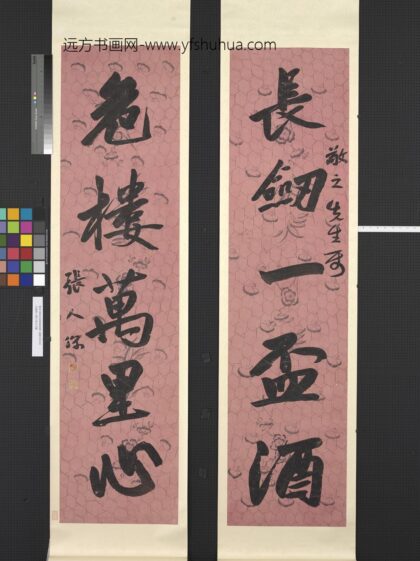 远方书画网-www.yfshuhua.com
敬之先生
長劔一盃酒
危樓萬里心
張人傑